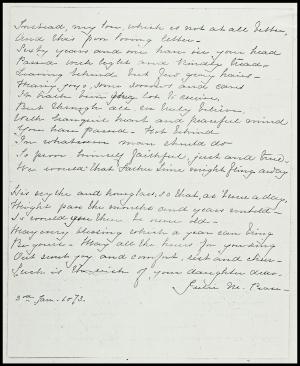 Instead, my love which is not at all better,
And this poor loving letter.
Sixty years and one have o'er your head
Passed with light and kindly tread.
Leaving behind but few gray hairs.
Many joys, some sorrows and cares
It hath been your lot to receive,
But through all in truly believe
With tranquil heart and peaceful mind
You have passed. Not behind
In whatsoever man should do
To prove himself faithful, just and true.
We would that Father Time might fling away
His scythe and hourglass, so that, as 'twere a day,
Might pass the months and years untold.
So would you then be never old.
May every blessing which a year can bring
Be yours. May all the hours for you sing
Out sweet joy and comfort, rest and cheer
Such is the wish of your daughter dear.
Julia M.
3rd Jan. 1873.